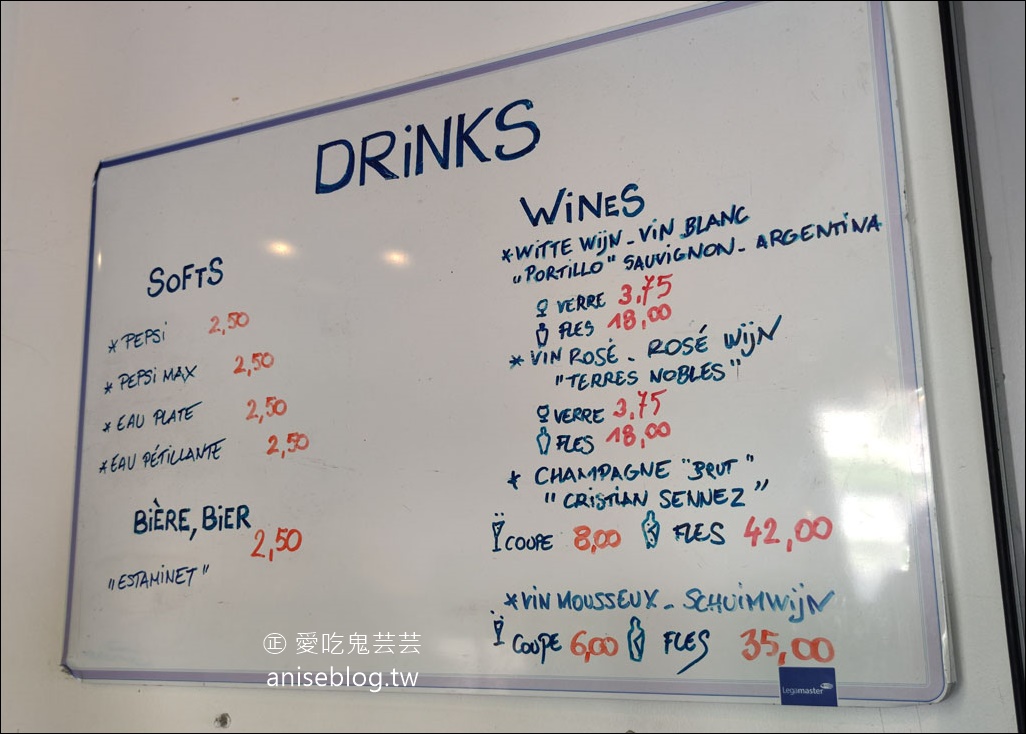 DRiNKS
SOFTS
* PEPSi 2,50
* PEPSi MAX 2,50
* EAU PLATE 2,50
* EAU PÉTILLANTE 2,50
BIÈRE, BiER
2,50
"ESTAMiNET"
WiNES
* WITTE WijN - ViN BLANC
"PORTILLO" SAUVIGNON - ARGENTINA
VERRE 3,75
FLES 18,00
* VIN ROSÉ - ROSÉ WijN
"TERRES NOBLES"
VERRE 3,75
FLES 18,00
* CHAMPAGNE "BRUT"
"CRISTIAN SENNEZ"
COUPE 8,00 FLES 42,00
* VIN MOUSSEUX - SCHUIMWijN
COUPE 6,00 FLES 35,00
Legamaster
㊣ 愛吃鬼芸芸
aniseblog.tw